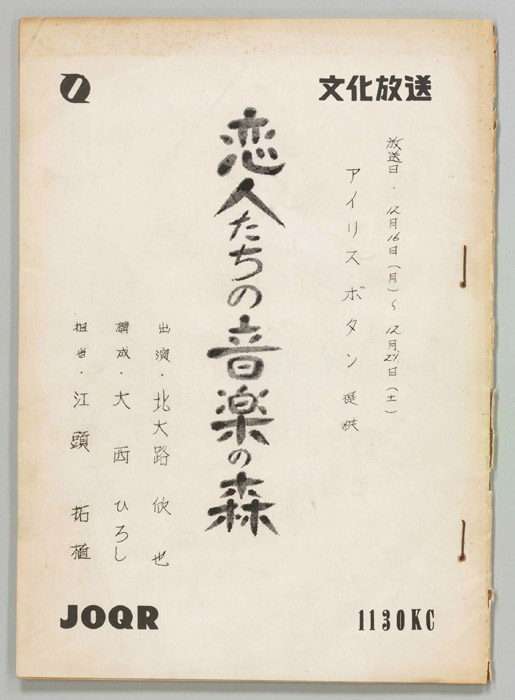 文化放送
放送日・12月16日(月)~12月21日(土)
アイリス・ボタン 提供
恋人たちの音楽の森
出演・北大路欣也
構成・大西ひろし
担当・江頭拓植
JOQR
1130KC